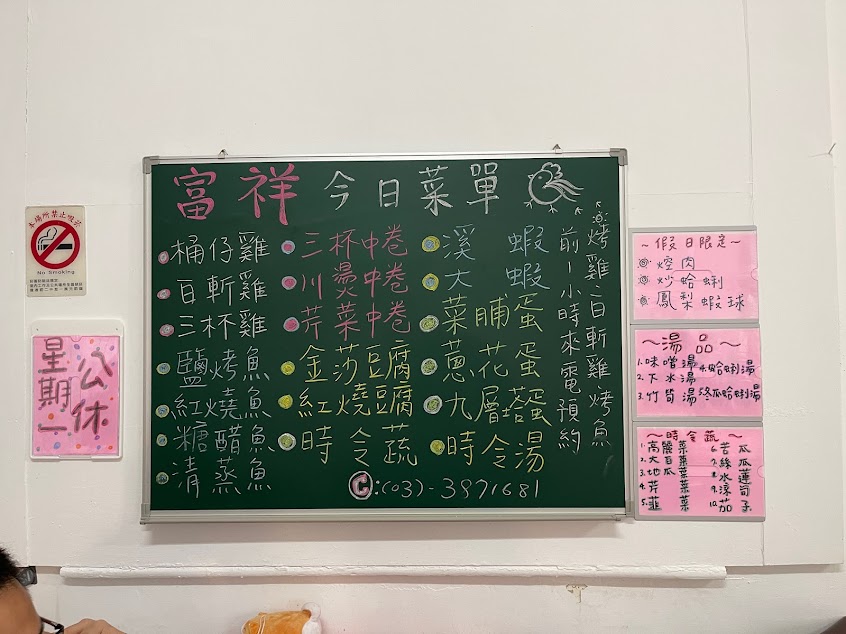 富祥 今日菜單
桶仔雞
百斬雞
三杯雞
鹽烤魚
紅燒魚
糖醋魚
清蒸魚
三杯中卷
川燙中卷
芹菜中卷
金莎豆腐
紅燒豆腐
時令蔬
溪蝦
大蝦
菜脯蛋
蔥花蛋
九層塔蛋
時令湯
烤雞、百斬雞、烤魚
前1小時來電預約
C:(03)-3871681
本場所禁止吸菸
No Smoking
星期一
公休
~假日限定~
焢肉
炒蛤蜊
鳳梨蝦球
~湯品~
1.味噌湯
2.下水湯
3.竹筍湯
4.蛤蜊湯
5.冬瓜蛤蜊湯
~時令蔬~
1.高麗菜
2.大白菜
3.地瓜葉
4.芹菜
5.韮菜
6.苦瓜
7.絲瓜
8.水蓮
9.涼筍
10.茄子